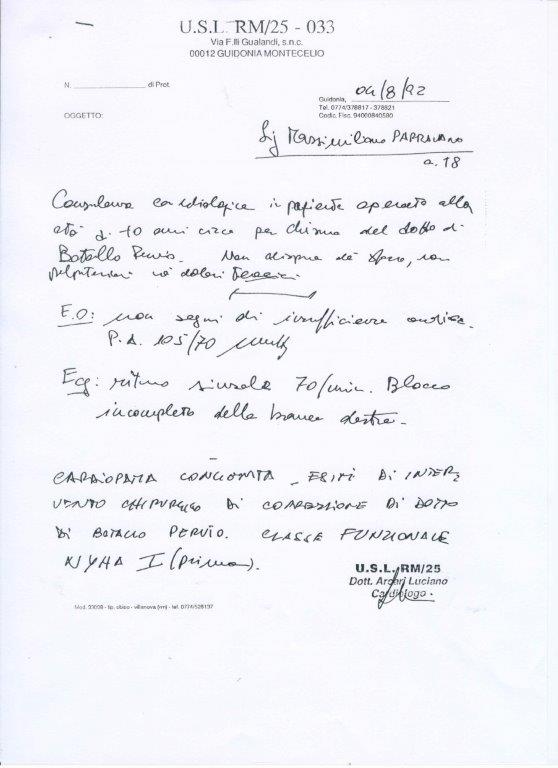 U.S.L. RM/25 - 033
Via F.lli Gualandi, s.n.c.
00012 GUIDONIA MONTECELIO
N. di Prot.
Guidonia, 04/8/92
Tel. 0774/378817 - 378821
Codic. Fisc. 94000840580
OGGETTO:
Sig Massimiliano
a. 18
Consulenza cardiologica in paziente operato alla
età di 10 anni circa per chiusura del dotto di
Botallo Pervio. Non dispnea da sforzo, non
palpitazioni nè dolori toracici
E.O: non segni di insufficienza cardiaca.
P.A. 105/70 mmHg
Ecg: ritmo sinusale 70/min. Blocco
incompleto della branca destra.
CARDIOPATIA CONGENITA - ESITI DI INTER
VENTO CHIRURGICO DI CORREZIONE DI DOTTO
DI BOTALLO PERVIO. CLASSE FUNZIONALE
NYHA I (Prima).
U.S.L. RM/25
Dott. Arcari Luciano
Cardiologo
Mod. 33008 - tip. obico - villanova (rm) - tel. 0774/528137